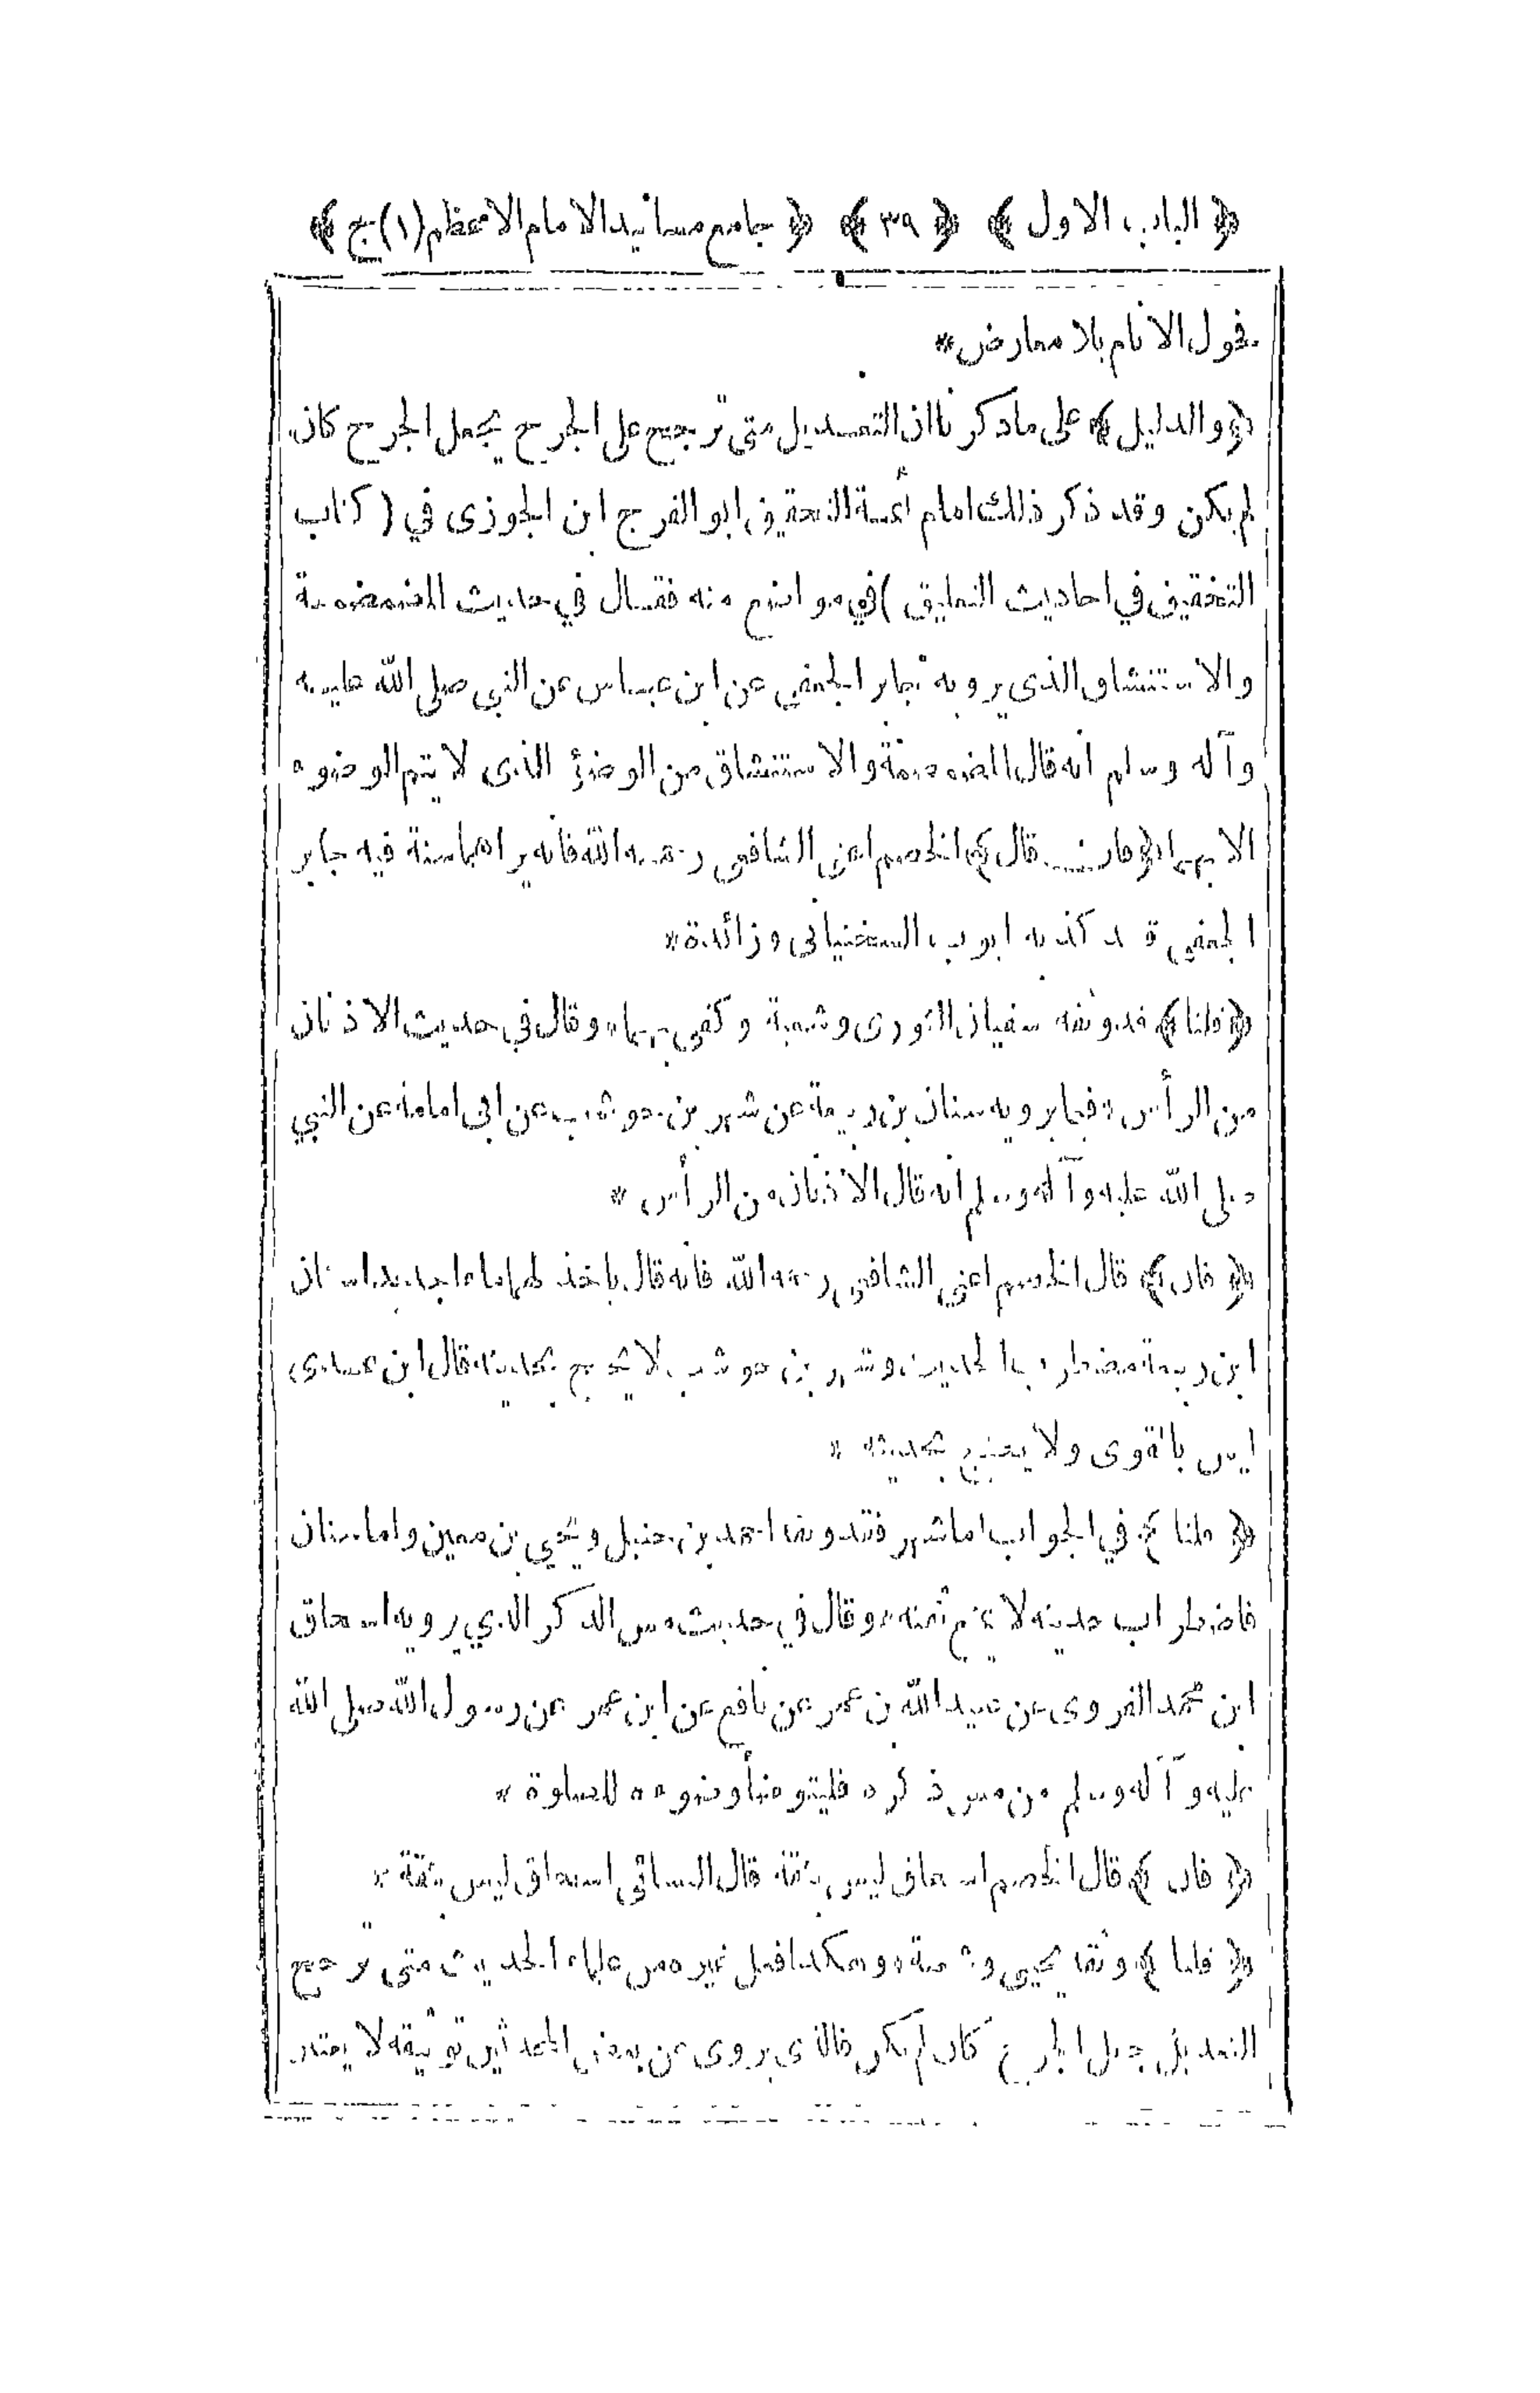 ﴿ الباب الاول ﴾ ﴿ ٣٩ ﴾ ﴿ جامع مسانيد الامام الاعظم (١) ج ﴾
فحول الانام بلا معارض *
﴿ والدليل ﴾ على ما ذكرنا ان التعديل متى ترجح على الجرح يجعل الجرح كان
لم يكن وقد ذكر ذلك امام أئمة التحقيق ابو الفرج ابن الجوزى في ( كتاب
التحقيق في احاديث التعليق ) في مواضع منه فقال في حديث المضمضة
والاستنشاق الذى يرويه جابر الجعفى عن ابن عباس عن النبي صلى الله عليه
وآله وسلم انه قال المضمضة والاستنشاق من الوضوء الذى لا يتم الوضوء
الا بهما ﴿ فان قال ﴾ الخصم اعنى الشافعى رحمه الله فانه يراهما سنة فيه جابر
الجعفى قد كذبه ايوب السختيانى وزائدة *
﴿ قلنا ﴾ قد وثقه سفيان الثورى وشعبة وكفى بهما * وقال في حديث الاذنان
من الرأس * فيما يرويه سنان بن ربيعة عن شهر بن حوشب عن ابى امامة عن النبي
صلى الله عليه وآله وسلم انه قال الاذنان من الرأس *
﴿ فان ﴾ قال الخصم اعني الشافعى رحمه الله فانه قال ياخذ لهما ماء جديدا سنان
ابن ربيعة مضطرب الحديث وشهر بن حوشب لا يحتج بحديثه قال ابن عدى
ليس بالقوى ولا يحتج بحديثه *
﴿ قلنا ﴾ في الجواب اما شهر فقد وثقه احمد بن حنبل ويحيى بن معين واما سنان
فاضطراب حديثه لا يمنع ثقته * وقال في حديث مس الذكر الذي يرويه اسحاق
ابن محمد الفروى عن عبيد الله بن عمر عن نافع عن ابن عمر عن رسول الله صلى الله
عليه وآله وسلم من مس ذكره فليتوضأ وضوءه للصلوة *
﴿ فان ﴾ قال الخصم اسحاق ليس بثقة قال النسائى اسحاق ليس بثقة *
﴿ قلنا ﴾ وثقه يحيى وشعبة * وهكذا فعل غيره من علماء الحديث متى ترجح
التعديل جعل الجرح كان لم يكن فالذى يروى عن بعض المحدثين توثيقه لا يعتد